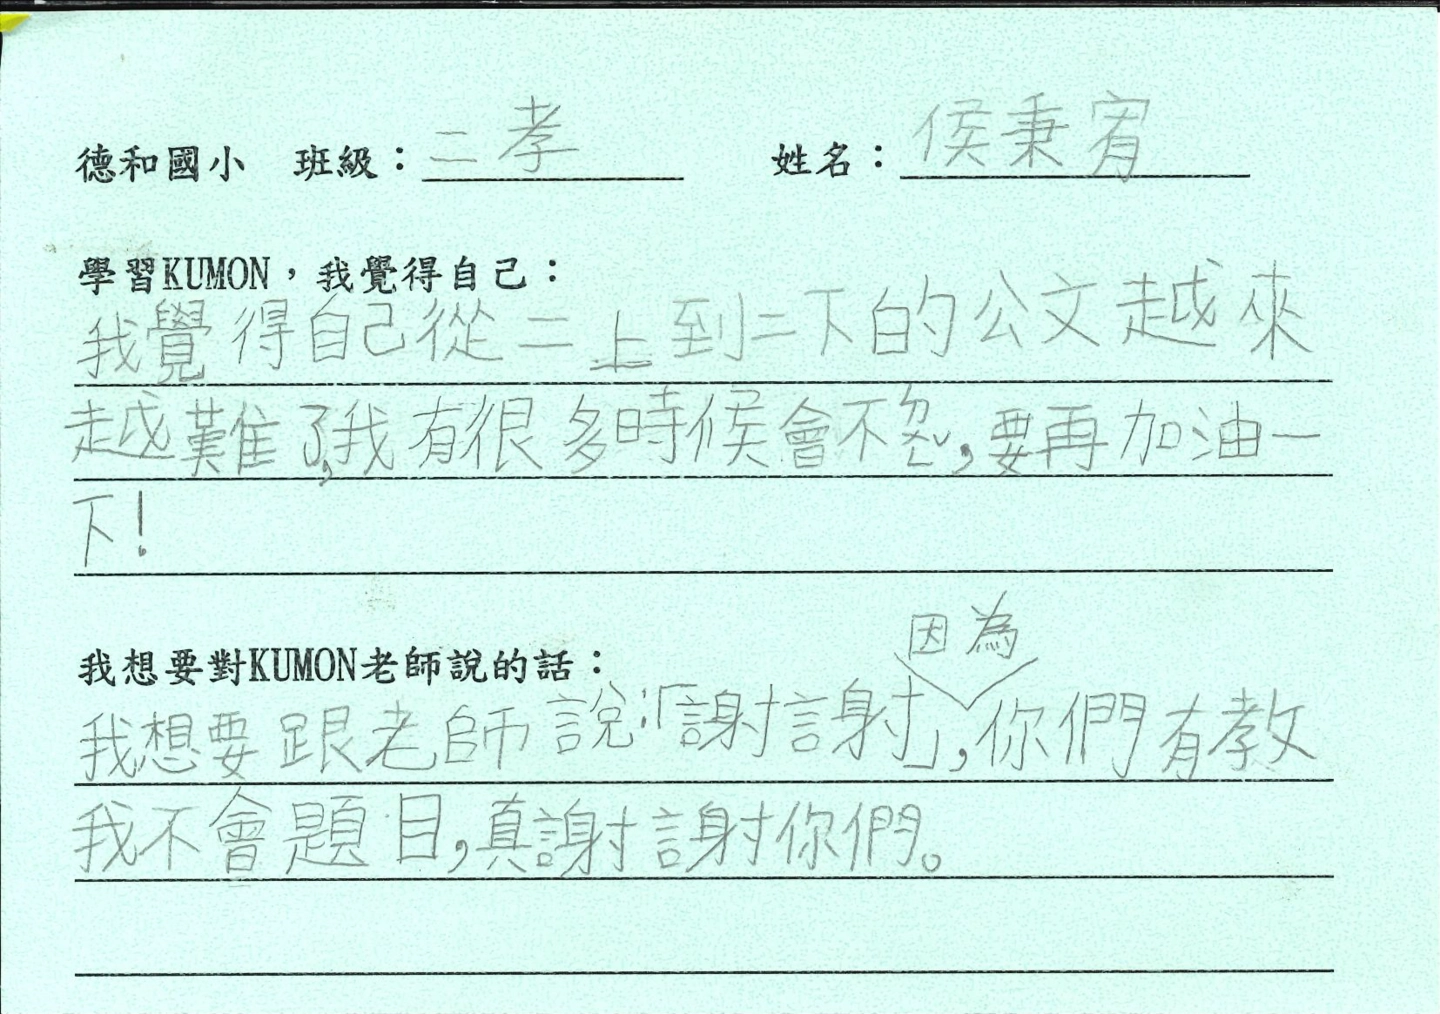 德和國小　班級：二孝　姓名：侯秉宥
學習KUMON，我覺得自己：
我覺得自己從二上到二下的公文越來
越難了,我有很多時候會不忍,要再加油一
下!
因為
我想要對KUMON老師說的話：
我想要跟老師說:「謝謝」,你們有教
我不會題目,真謝謝你們。